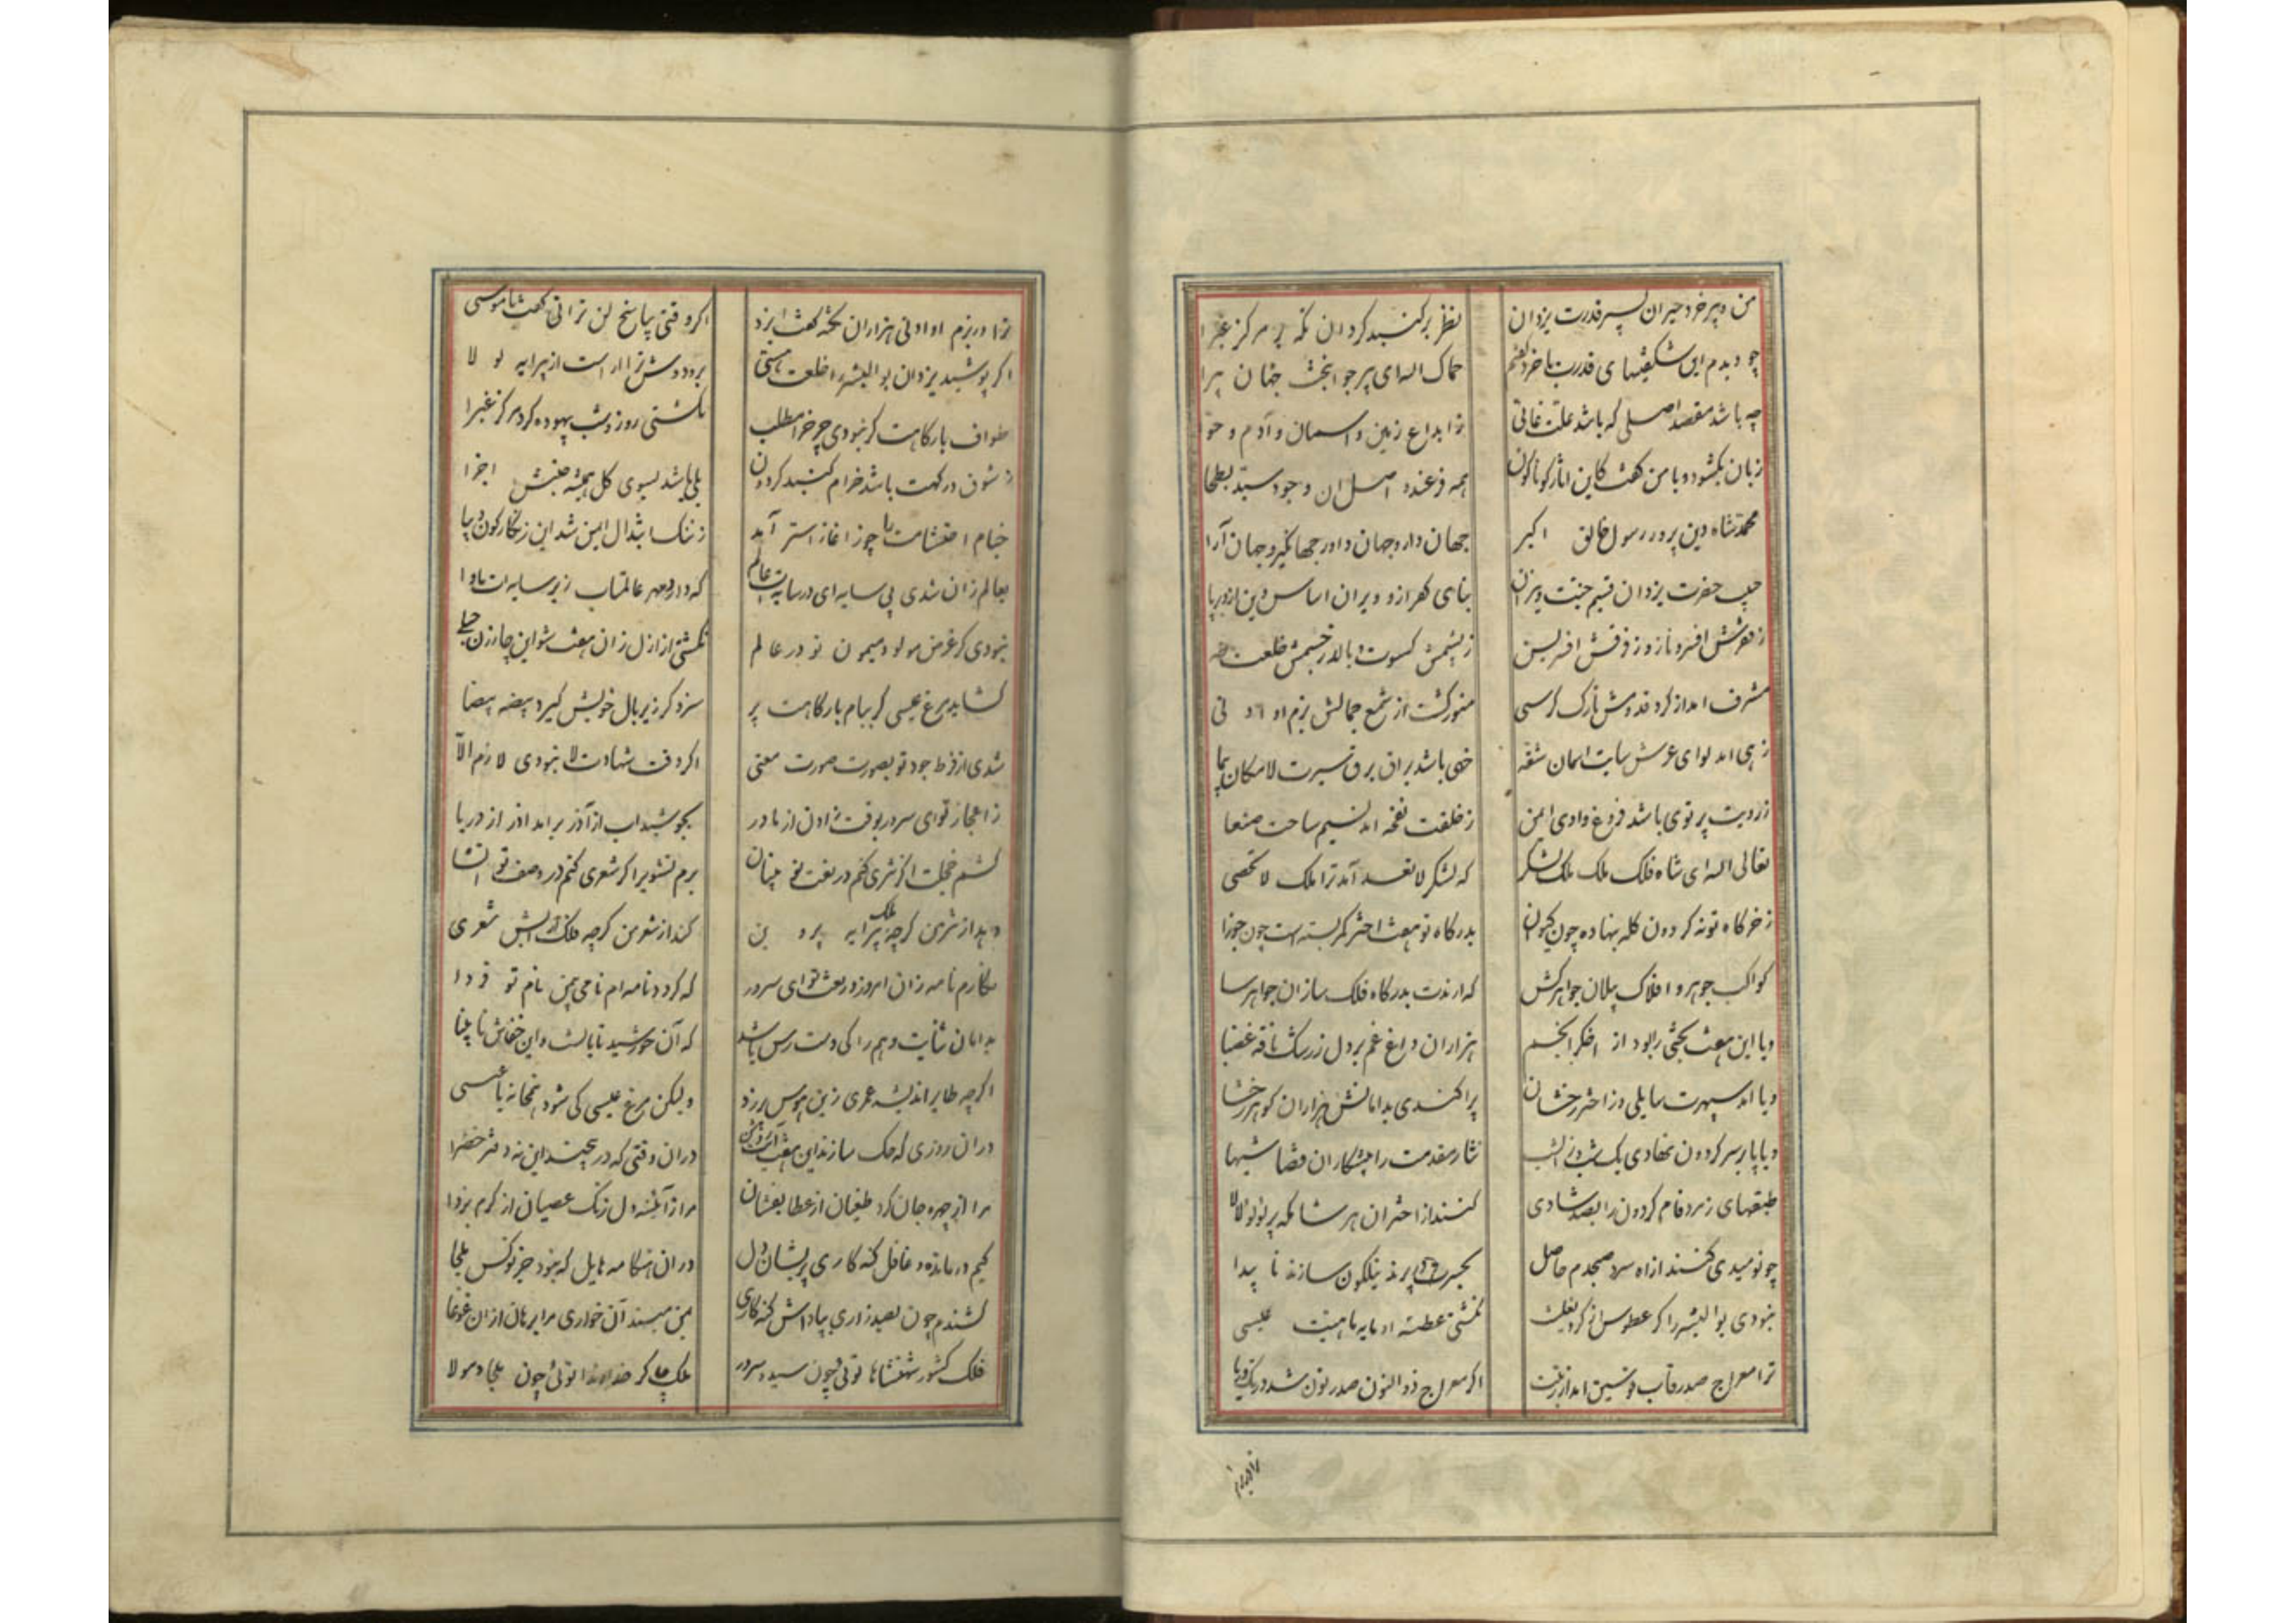 من و پیر خرد حیران بسر قدرت یزدان نظر بر کنبد کردان نکه بر مرکز غبرا
چو دیدم این شکفتیهای قدرت با خرد کفتم حماک اله ای پیر جوانبخت جهان پیرا
چه باشد مقصد اصلی که باشد علت غائی ز ابداع زمین و اسمان و آدم و حوا
زبان بکشود و با من کفت کاین اثار کوناکون همه فرعند و اصل ان وجود سید بطحا
محمد شاه دین پرور رسول خالق اکبر جهان دار و جهان داور جهانکیر و جهان آرا
حبیب حضرت یزدان قسیم جنت و نیران بنای کفر ازو ویران اساس دین ازو برپا
ز فقرش افسر و نازد ز فرقش افسر لیکن ز پشمش کسوت و بالد ز جسمش خلعت
مشرف امد از کرد قدومش تارک کرسی منور کشت از شمع جمالش بزم او ادنی
زهی امد لوای عرش سایت اسمان شقه خهی باشد براق برق سیرت لامکان پیما
ز رویت پرتوی باشد فروغ وادی ایمن ز خلقت نفخه امد نسیم ساحت صنعا
تعالی اله ای شاه فلک ملک ملک لشکر که لشکر لا تعد آمد ترا ملک لا تحصی
ز خرکاه تو نه کردون کله بنهاده چون کیوان بدرکاه تو هفت اختر کمر بسته است چون جوزا
کواکب جوهر و افلاک پیلان جواهرکش که ارندت بدرکاه فلک سازان جواهرسا
و یا این هفت بختی را بود از اخکر انجم هزاران داغ غم بر دل ز رشک ناقه غضبا
و یا امد سپهرت سایلی وز اختر رخشان پراکندی بدامانش هزاران کوهر رخشا
و یا پا بر سر کردون نهادی یک شب و زان شب نثار مقدمت را پیشکاران قضا شبها
طبقهای زمرد فام کردون را بصد شادی کنند از اختران هر شامکه پر لولو لالا
چو نومیدی کنند از اه سرد صبحدم حاصل بحسرت پرند نیلکون سازند نا پیدا
نبودی بو البشر را کر عطوس از کرد نعلت نکشتی عطسه او مایه ماهیت عیسی
ترا معراج صدر قاب قوسین امد از رفعت اکر معراج ذو النون صدر نون شد در تک دریا
ترا در بزم
ترا در بزم او ادنی هزاران نکته کفت ایزد اکر وقتی بپاسخ لن ترانی کفت با موسی
اکر پوشید یزدان بو البشر را خلعت هستی برو دوش ترا اراست از پیرایه لو لا
طواف بارکاهت کر نبودی چرخ را مطلب نکشتی روز و شب بیهوده کرد مرکز غبرا
ز شوق درکهت باشد خرام کنبد کردون بلی باشد بسوی کل همیشه جنبش اجزا
خیام احتشامت را چو ز اغاز استر آمد ز ننک ابتذال ایمن شد این زنکارکون دیبا
بعالم زان شدی بی سایه ای در سایه‌ات عالم که دارد مهر عالمتاب زیر سایه ات ماوا
نبودی کر غرض مولود میمون تو در عالم نکشتی از ازل زان هفت شو این چار زن حبلی
کشاید مرغ عیسی کر ببام بارکاهت پر سزد کر زیر بال خویش کیرد بیضه بیضا
شدی از فرط جود تو بصورت صورت معنی اکر وقت شهادت لا نبودی لازم الا
ز اعجاز تو ای سرور بوقت زادن از مادر بجوشید اب از آذر برامد اذر از دریا
کشم خجلت اکر نثری کنم در نعت تو بنیان برم تشویر اکر شعری کنم در وصف تو انشا
و بد از نثر من کرچه ملک پیرایه پروین کند از شعر من کرچه فلک ارایش شعری
نکارم نامه زان امروز در نعت تو ای سرور که کردد نامه ام نامی چنین نام تو فردا
بدامان ثنایت وهم را کی دست رس باشد که آن خورشید تابانست و این خفاش نا بینا
اکرچه طایر اندیشه عمری زین هوس ورزد ولیکن مرغ عیسی کی شود همخانه با عیسی
دران روزی که حک سازند این هفت آیت روشن دران وقتی که در پیچند این نه دفتر خضرا
مرا از چهره جان کرد طغیان از عطا بفشان مرا از آئینه دل زنک عصیان از کرم بزدا
کیم درمانده و غافل کنه کاری پریشان دل دران هنکامه هایل که نبود جز تو کس ملجا
کشندم چون بصد زاری بپاداش کنه کاری بمن مپسند آن خواری مرا برهان ازان غوغا
فلک کشور شهنشاها توئی چون سید و سرور ملک چاکر خداوندا توئی چون ملجا و مولا